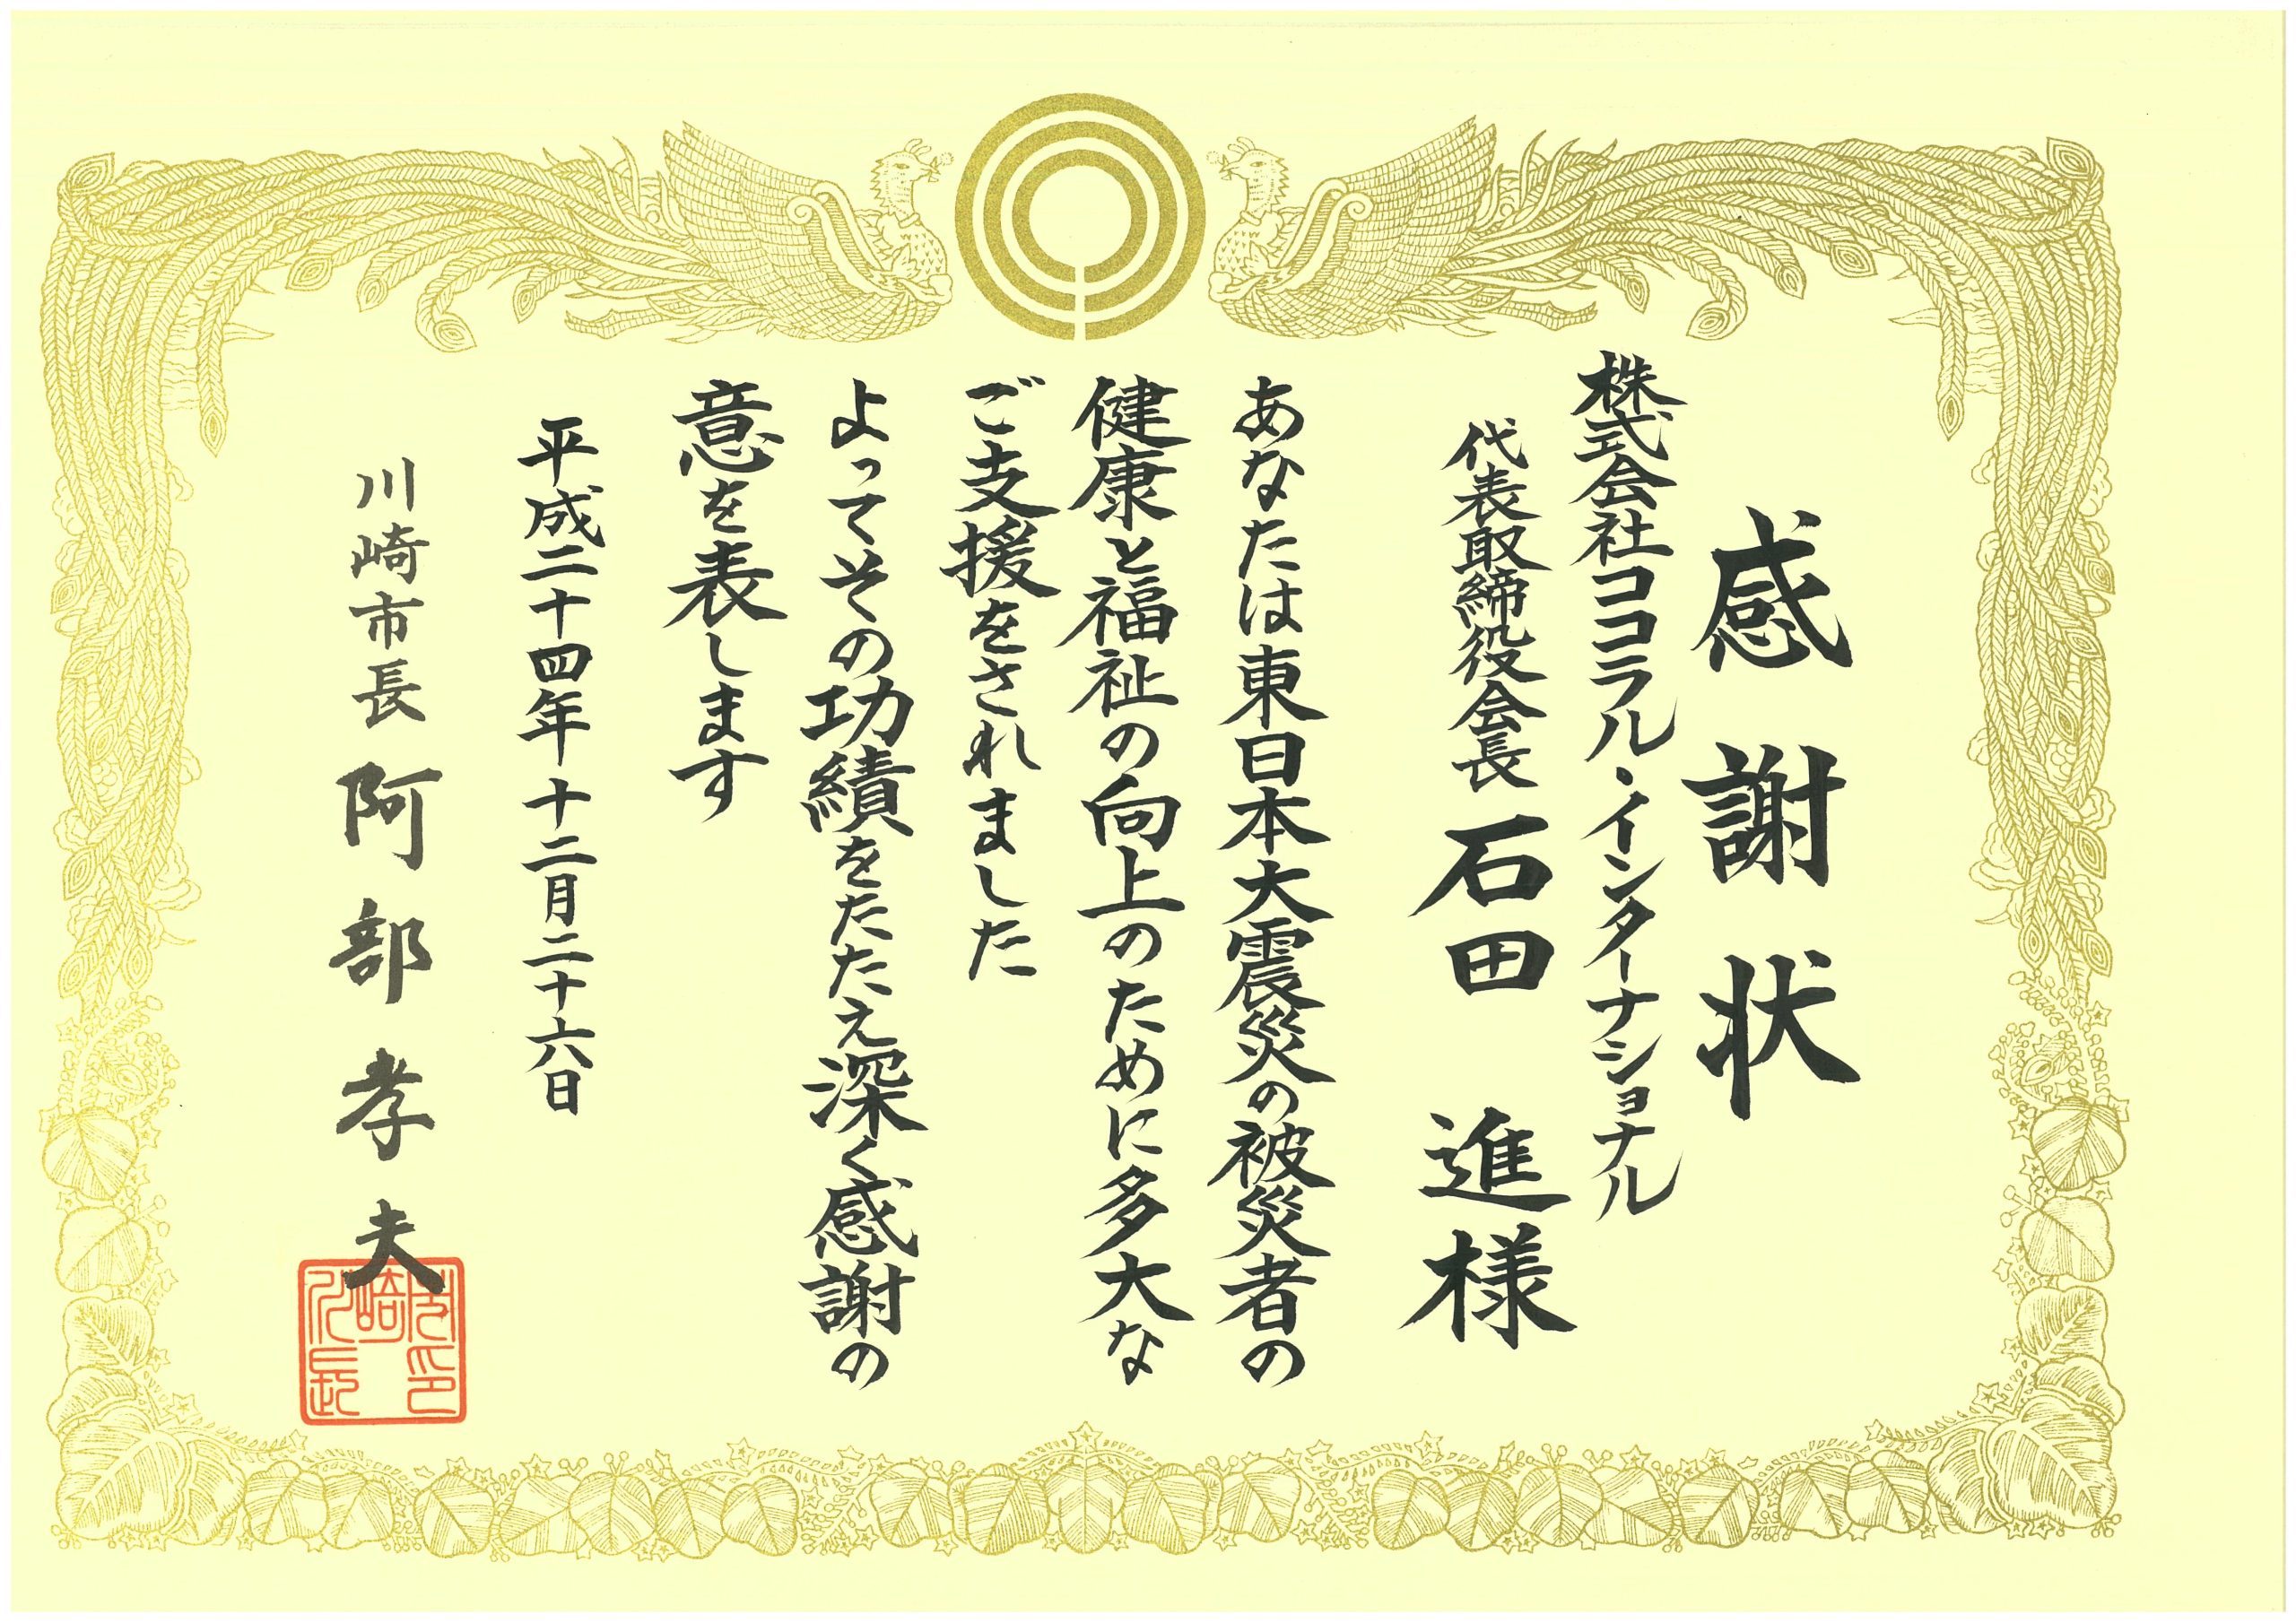 感謝状
株式会社ココラル・インターナショナル
代表取締役会長 石田 進様
あなたは東日本大震災の被災者の
健康と福祉の向上のために多大な
ご支援をされました
よってその功績をたたえ深く感謝の
意を表します
平成二十四年十二月二十六日
川崎市長 阿部孝夫
川崎市長印